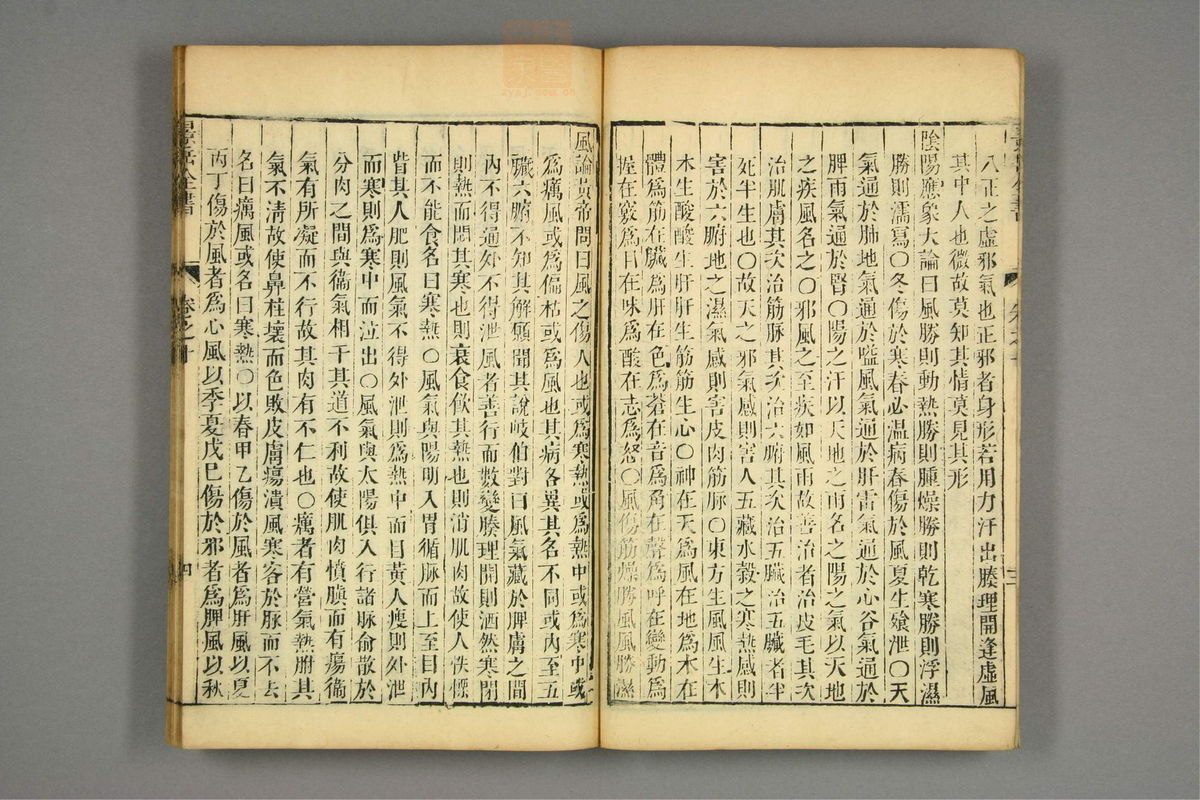 八正之虛邪氣也正邪者身形若用力汗出腠理開逢虛風
其中人也微故莫知其情莫見其形
陰陽應象大論曰風勝則動熱勝則腫燥勝則乾寒勝則浮濕
勝則濡寫○冬傷於寒春必温病春傷於風夏生飧泄○天
氣通於肺地氣通於嗌風氣通於肝雷氣通於心谷氣通於
脾雨氣通於腎○陽之汗以天地之雨名之陽之氣以天地
之疾風名之○邪風之至疾如風雨故善治者治皮毛其次
治肌膚其次治筋脉其次治六腑其次治五臟治五臟者半
死半生也○故天之邪氣感則害人五藏水穀之寒熱感則
害於六腑地之濕氣感則害皮肉筋脉○東方生風風生木
木生酸酸生肝肝生筋筋生心○神在天爲風在地爲木在
體爲筋在臟爲肝在色爲蒼在音爲角在聲爲呼在變動爲
握在竅爲目在味爲酸在志爲怒○風傷筋燥勝風風勝濕
三
風論黄帝問曰風之傷人也或爲寒熱或爲熱中或爲寒中或
爲癘風或爲偏枯或爲風也其病各異其名不同或内至五
臟六腑不知其解願聞其說岐伯對曰風氣藏於脾膚之間
内不得通外不得泄風者善行而數變腠理開則洒然寒閉
則熱而悶其寒也則衰食飲其熱也則消肌肉故使人怢慄
而不能食名曰寒熱○風氣與陽明入胃循脉而上至目内
眥其人肥則風氣不得外泄則爲熱中而目黄人瘦則外泄
而寒則爲寒中而泣出○風氣與太陽俱入行諸脉俞散於
分肉之間與衞氣相干其道不利故使肌肉憤䐜而有瘍衞
氣有所凝而不行故其肉有不仁也○癘者有營氣熱腑其
氣不淸故使鼻柱壞而色敗皮膚瘍潰風寒客於脉而不去
名曰癘風或名曰寒熱○以春甲乙傷於風者爲肝風以夏
丙丁傷於風者爲心風以季夏戊巳傷於邪者爲脾風以秋
景岳全書
卷之十
四